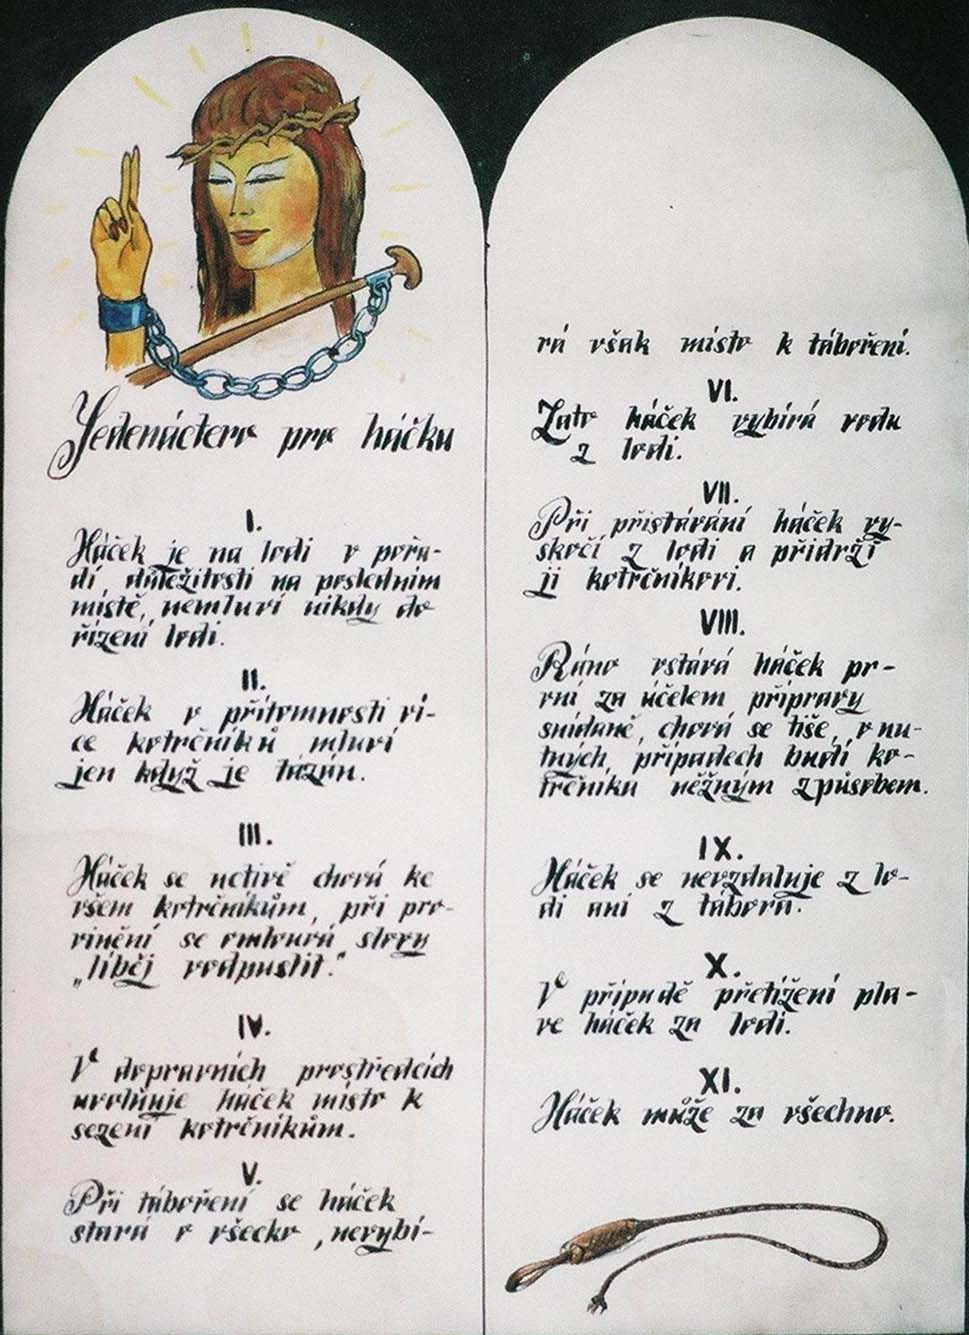 Jedenáctero pro háčka
I.
Háček je na lodi v pořa-
dí, důležitosti na posledním
místě, nemluví nikdy do
řízení lodi.
II.
Háček v přítomnosti ví-
ce kotrčníků mluví
jen když je tázán.
III.
Háček se uctivě chová ke
všem kotrčníkům, při pro-
vinění se omlouvá slovy
„liběj vodpustit."
IV.
V dopravních prostředcích
uvolňuje háček místo k
sezení kotrčníkům.
V.
Při táboření se háček
stará o všecko, nevybí-
rá však místo k táboření.
VI.
Zato háček vybírá vodu
z lodi.
VII.
Při přistávání háček vy-
skočí z lodi a přidrží
ji kotrčníkovi.
VIII.
Ráno vstává háček pr-
vní za účelem přípravy
snídaně, chová se tiše, v nu-
tných případech budí ko-
trčníka něžným způsobem.
IX.
Háček se nevzdaluje z lo-
di ani z tábora.
X.
V případě přetížení pla-
ve háček za lodí.
XI.
Háček může za všechno.